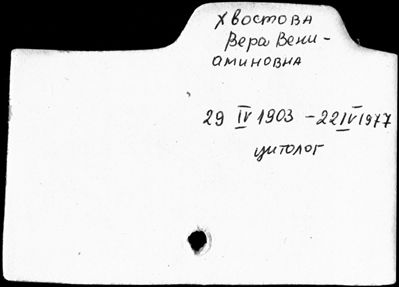 Хвостова
Вера Вени-
аминовна
29 IV 1903 - 22 IV 1977
цитолог